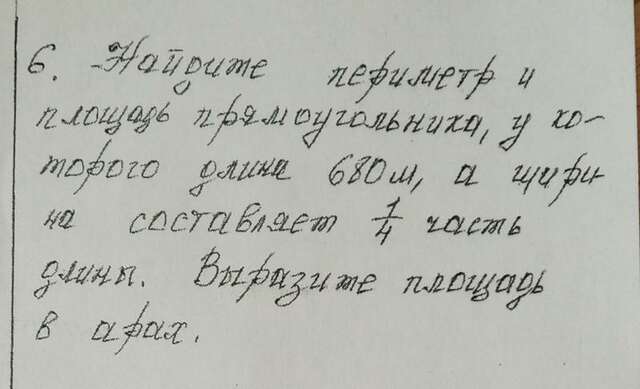 6. Найдите периметр и
площадь прямоугольника, у ко-
торого длина 680м, а шири
на составляет 1/4 часть
длины. Выразите площадь
в арах.